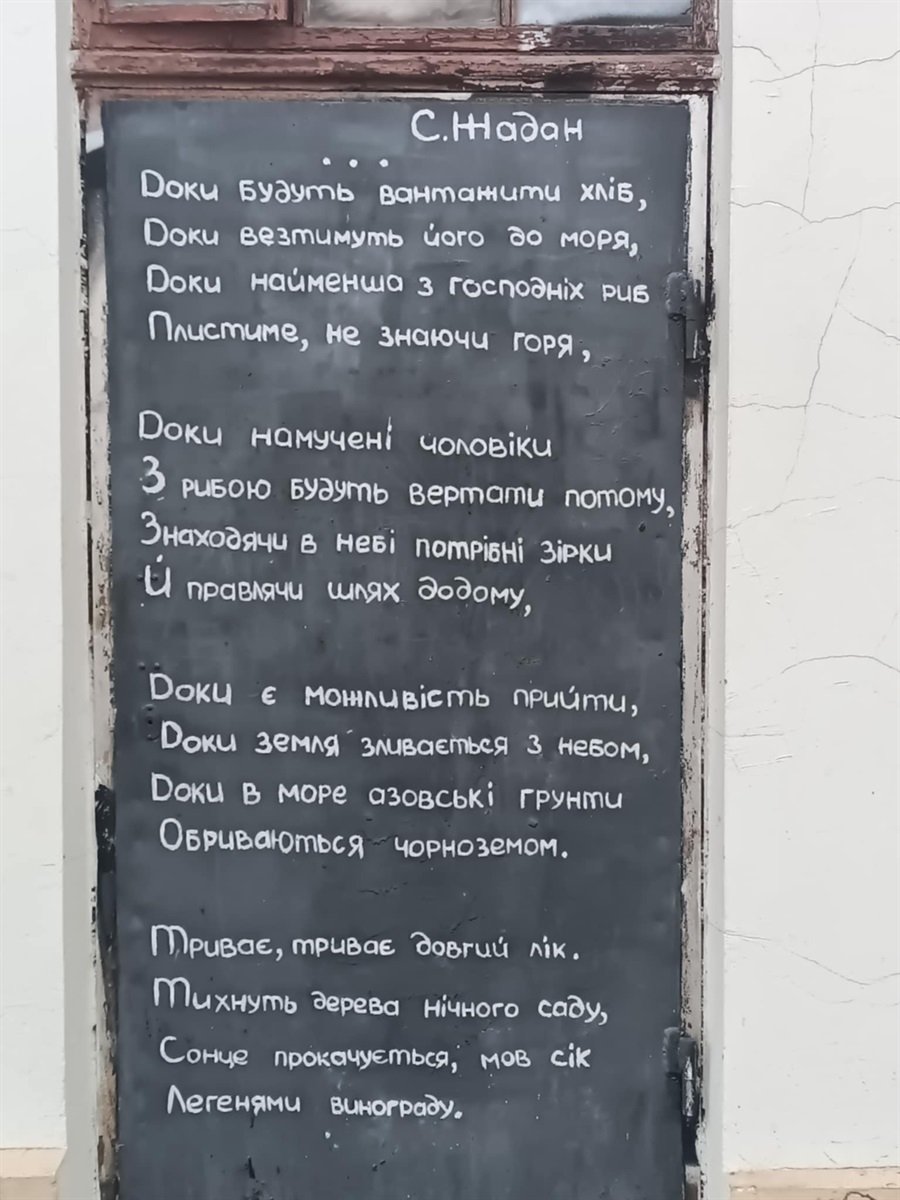 С. Жадан
...
Доки будуть вантажити хліб,
Доки везтимуть його до моря,
Доки найменша з господніх риб
Плистиме, не знаючи горя,
Доки намучені чоловіки
З рибою будуть вертати потому,
Знаходячи в небі потрібні зірки
Й правлячи шлях додому,
Доки є можливість прийти,
Доки земля зливається з небом,
Доки в море азовські ґрунти
Обриваються чорноземом.
Триває, триває довгий лік.
Тихнуть дерева нічного саду,
Сонце прокачується, мов сік
Легенями винограду.